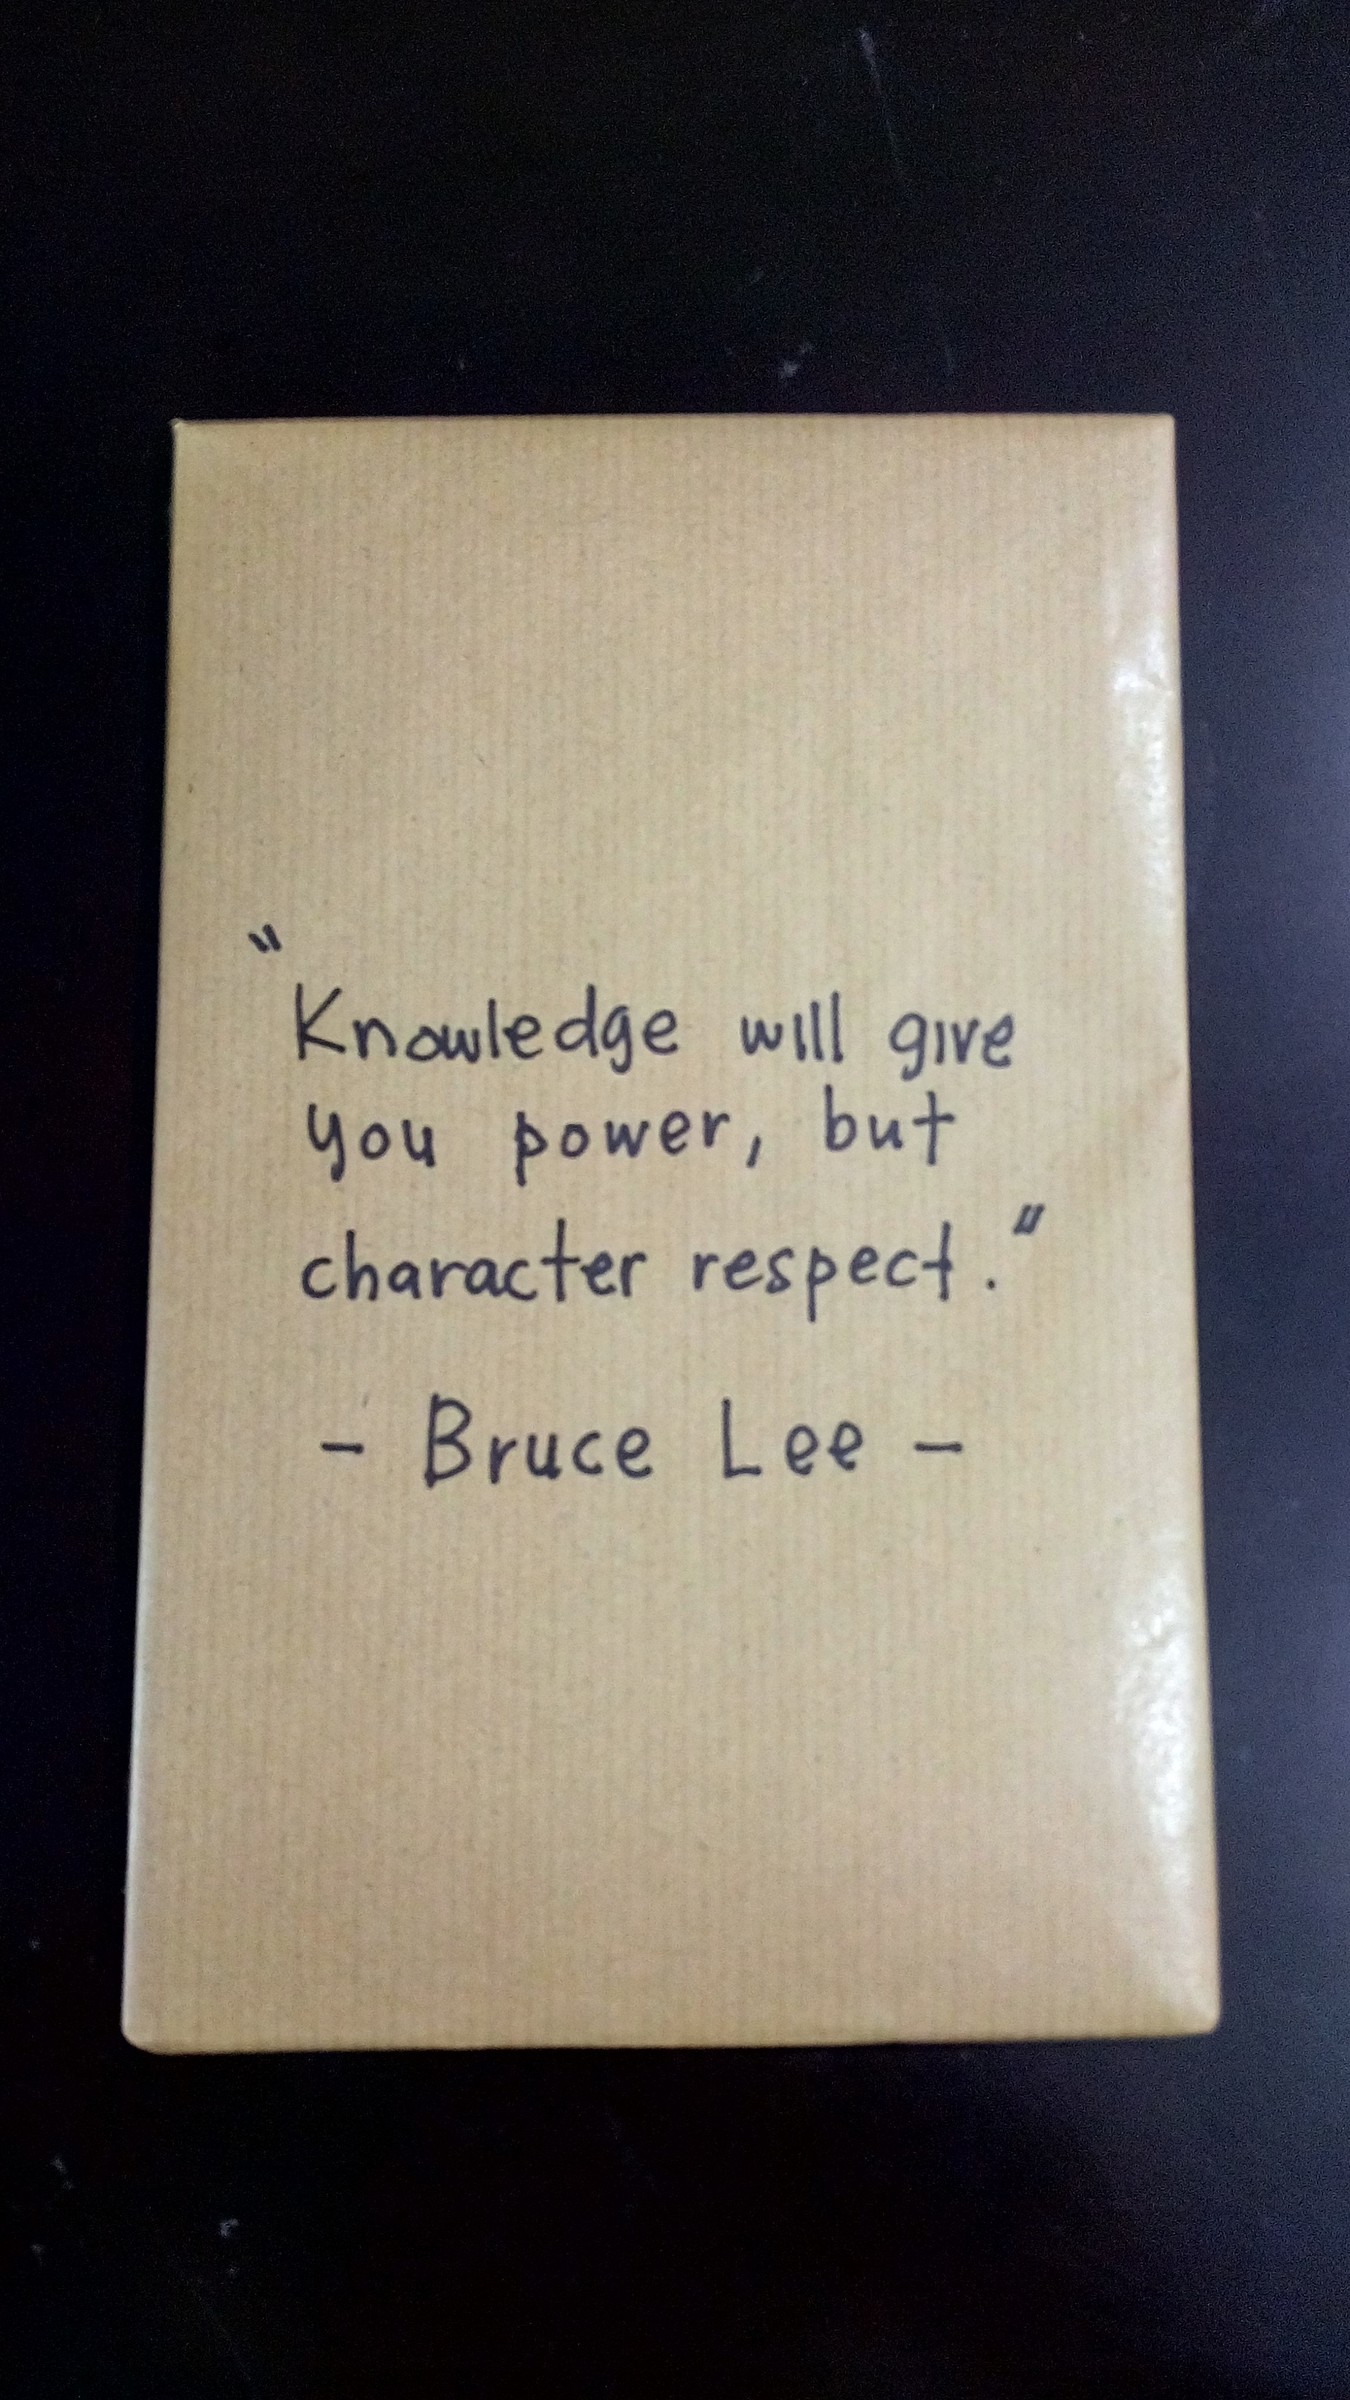 "Knowledge will give
you power, but
character respect."
- Bruce Lee -